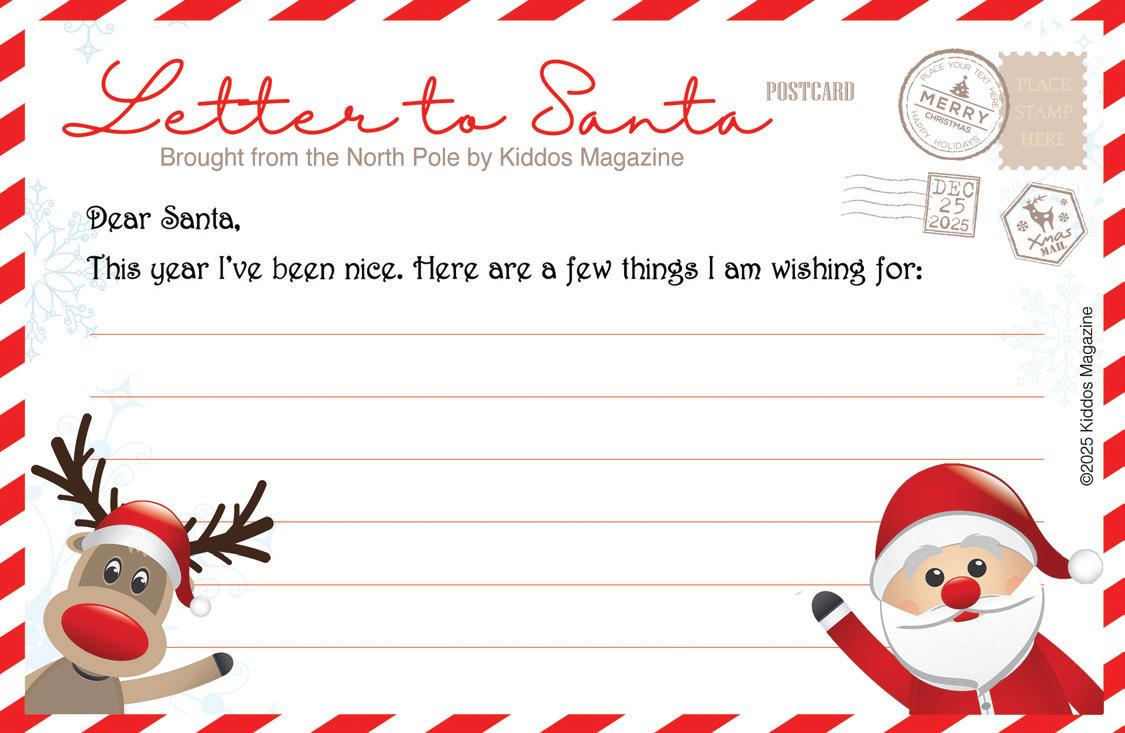 Letter to Santa
POSTCARD
Brought from the North Pole by Kiddos Magazine
PLACE YOUR TEXT HERE
MERRY
CHRISTMAS
HAPPY HOLIDAYS
PLACE
STAMP
HERE
DEC
25
2025
Xmas
MAIL
Dear Santa,
This year I've been nice. Here are a few things I am wishing for:
©2025 Kiddos Magazine